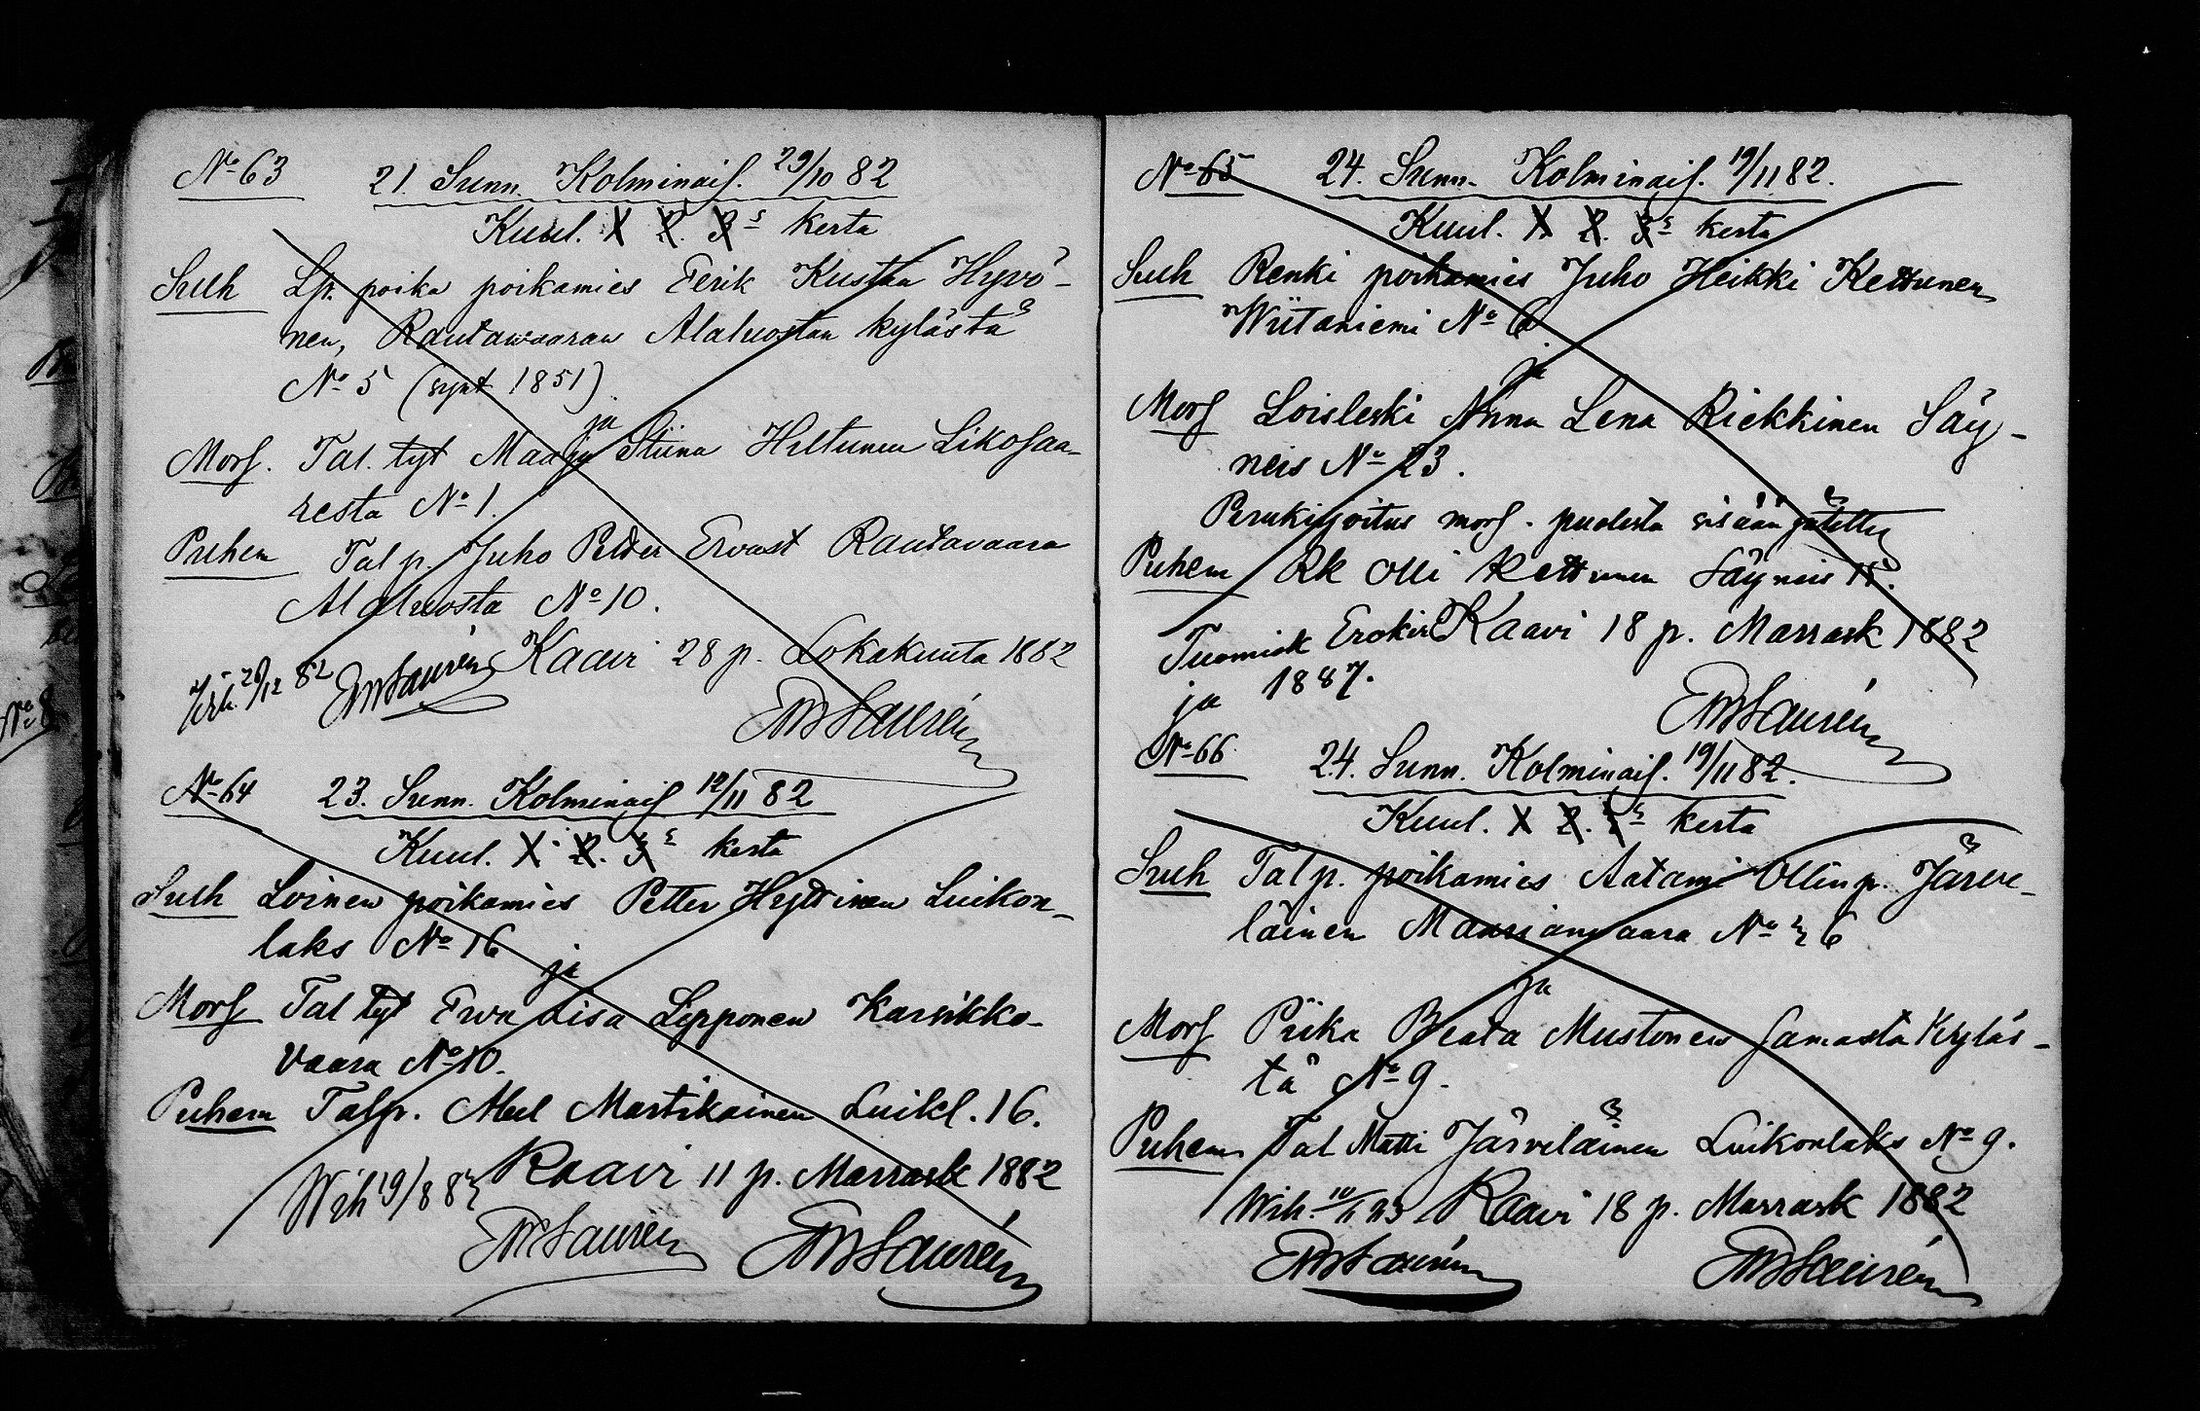 No 63 21. Sunn. Kolminais. 29/10 82
Kuul. 1 2. 3s kerta
Sulh Lp. poika poikamies Eerik Kustaa Hyvö-
nen, Rautawaaran Alaluostan kylästä
No 5 (synt 1851)
ja
Mors. Tal. tyt Maria Stiina Hiltunen Likosaa-
resta No 1.
Puhem Talp. Juho Petter Ervast Rautavaara
Alaluosta No 10.
Kaavi 28 p. Lokakuuta 1882
Wih. 26/12 82 EWLaurén
EWLaurén
No 64 23. Sunn. Kolminais 12/11 82
Kuul. 1. 2. 3s kerta
Sulh Loinen poikamies Petter Hyttinen Luikon-
laks No 16
ja
Mors Tal tyt Ewa Lisa Lipponen Karsikko-
vaara No 10.
Puhem Talp. Abel Martikainen Luikl. 16.
Kaavi 11 p. Marrask 1882
Wih 19/8 83
EWLaurén EWLaurén
No 65 24. Sunn. Kolminais. 19/11 82.
Kuul. 1. 2. 3s kerta
Sulh Renki poikamies Juho Heikki Kettunen
Wiitaniemi No 6
ja
Mors Loisleski Anna Lena Riekkinen Säy-
neis No 23.
Perukirjoitus mors. puolesta sisään jätetty
Puhem Rk Olli Kettunen Säyneis 15.
Kaavi 18 p. Marrask 1882
Tuomiok Erokirj
ja 1887.
EWLaurén
No 66 24. Sunn. Kolminais. 19/11 82.
Kuul. 1 2. 3s kerta
Sulh Talp. poikamies Aatami Ollinp. Järve-
läinen Maarianvaara No 26
ja
Mors Piika Beata Mustonen samasta kyläs-
tä No 9.
Puhem Tal Matti Järveläinen Luikonlaks No 9.
Wih. 10/1 83 Kaavi 18 p. Marrask 1882
EWLaurén EWLaurén